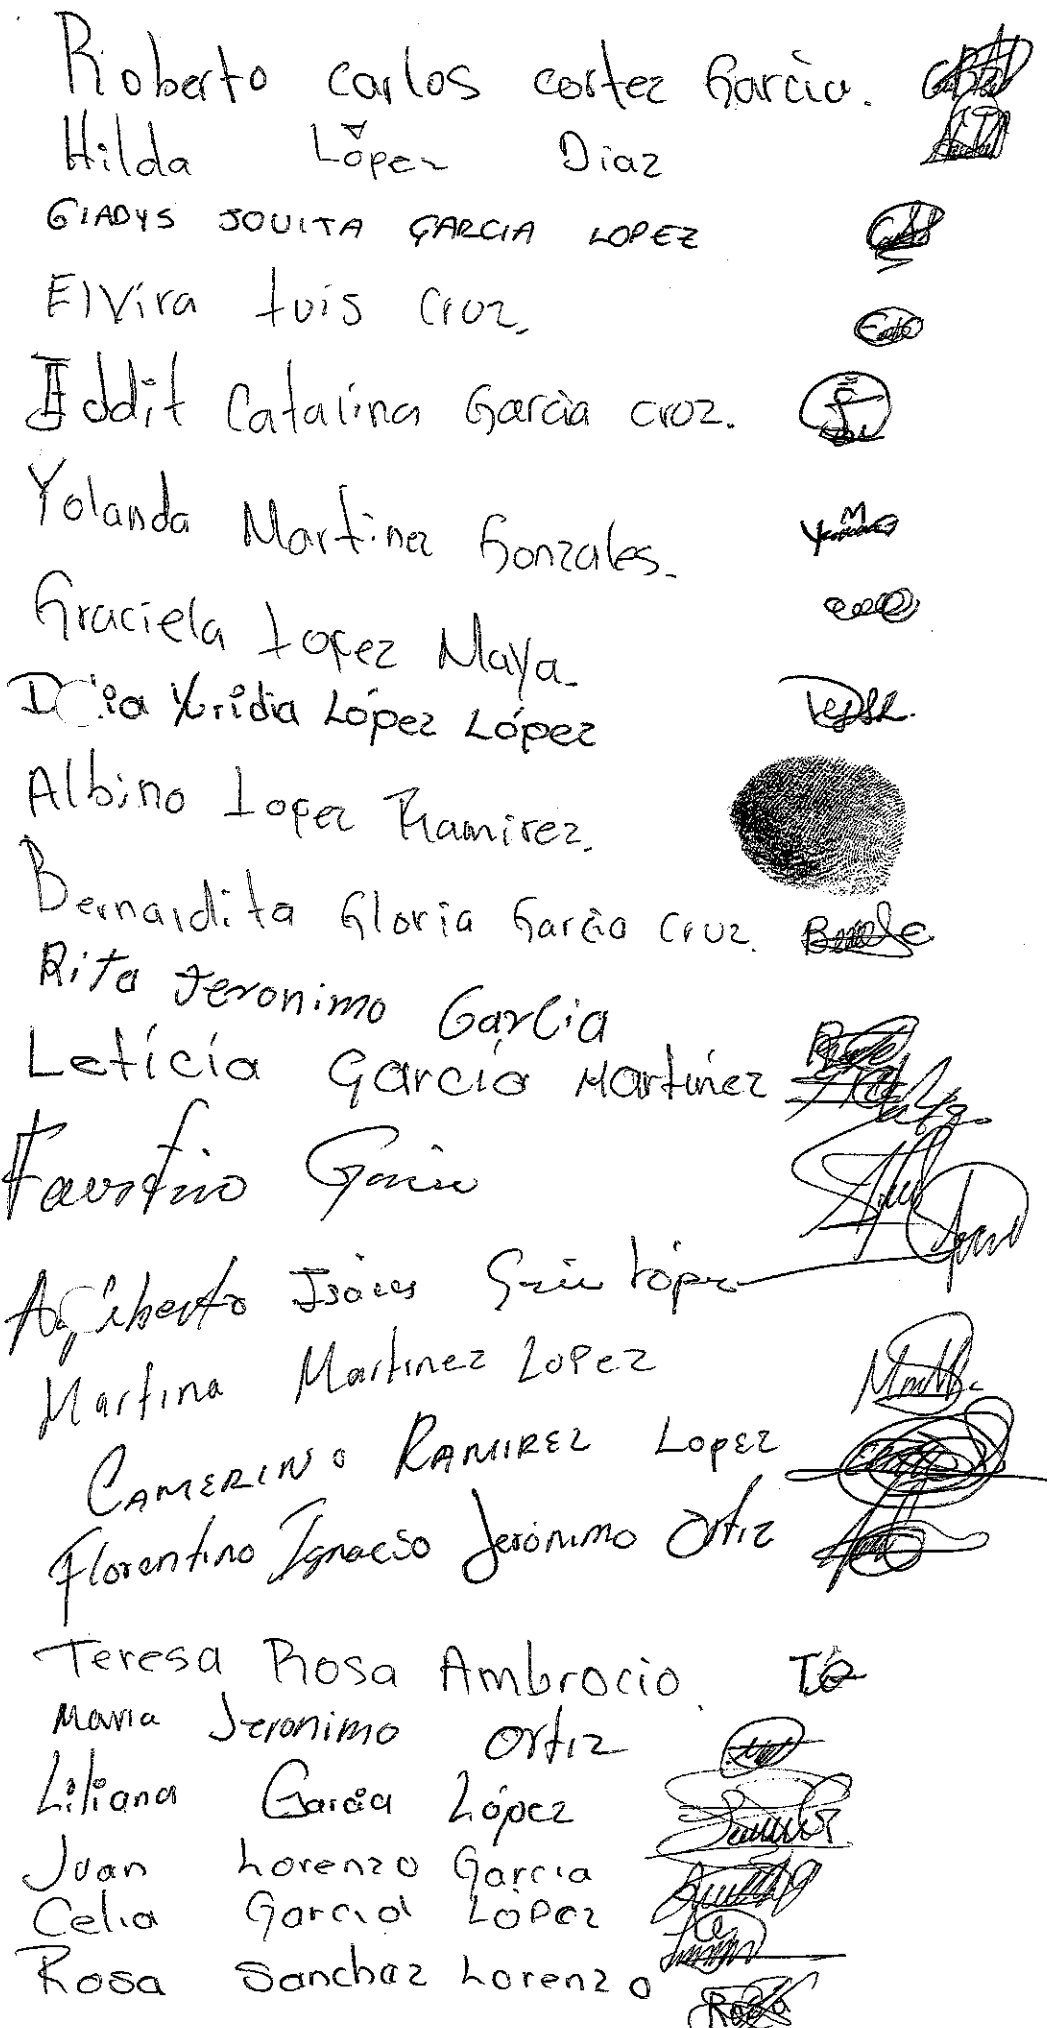 Roberto Carlos cortez Garcia.
Hilda López Diaz
GLADYS JOVITA GARCIA LOPEZ
Elvira Luis Cruz.
Eddit Catalina Garcia cruz.
Yolanda Martinez Gonzales.
Graciela Lopez Maya.
Yuridia López López
Albino Lopez Ramirez.
Bernardita Gloria Garcia Cruz.
Rita Jeronimo Garcia
Leticia Garcia Martinez
Faustino Garcia
Isaias Garcia López
Martina Martinez Lopez
CAMERINO RAMIREZ LOPEZ
Florentino Ignacio Jerónimo Ortiz
Teresa Rosa Ambrocio.
Maria Jeronimo Ortiz
Liliana Garcia López
Juan Lorenzo Garcia
Celia Garcia López
Rosa Sanchaz Lorenzo